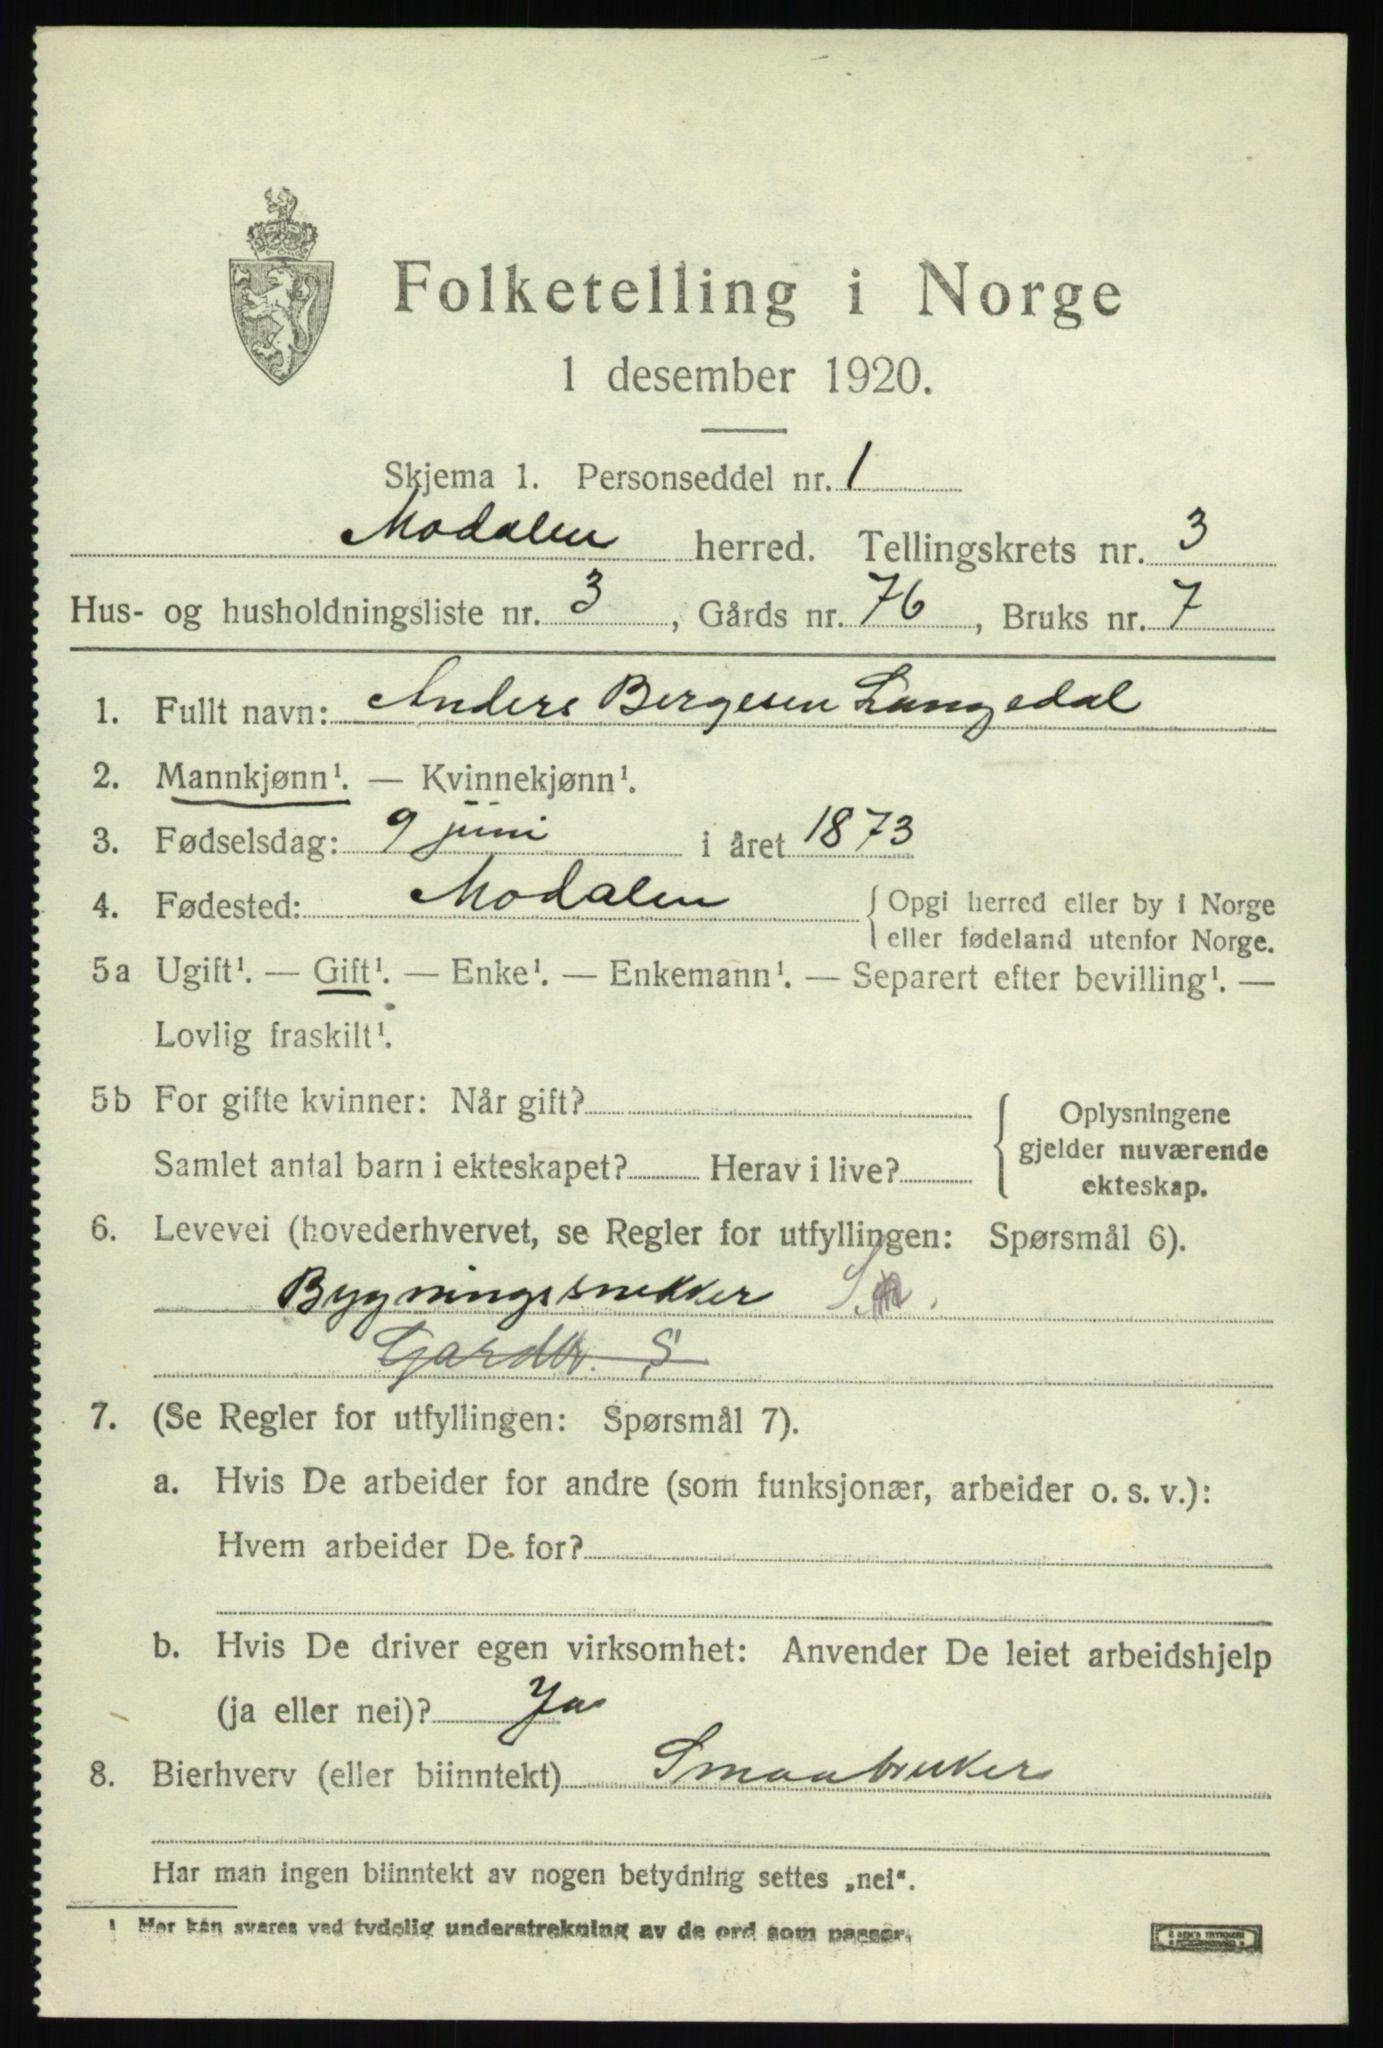 Folketelling i Norge
1 desember 1920.
Skjema 1. Personseddel nr. 1
Modalen herred. Tellingskrets nr. 3
Hus- og husholdningsliste nr. 3, Gårds nr. 76, Bruks nr. 7
1. Fullt navn: Anders Bergesen Langedal
2. Mannkjønn¹. — Kvinnekjønn¹.
3. Fødselsdag: 9 juni i året 1873
4. Fødested: Modalen { Opgi herred eller by i Norge
eller fødeland utenfor Norge.
5a Ugift¹. — Gift¹. — Enke¹. — Enkemann¹. — Separert efter bevilling¹. —
Lovlig fraskilt¹.
5b For gifte kvinner: Når gift? { Oplysningene
gjelder nuværende
Samlet antal barn i ekteskapet? Herav i live?
ekteskap.
6. Levevei (hovederhvervet, se Regler for utfyllingen: Spørsmål 6).
Bygningssnekker
Gardbr. S
7. (Se Regler for utfyllingen: Spørsmål 7).
a. Hvis De arbeider for andre (som funksjonær, arbeider o. s. v.):
Hvem arbeider De for?
b. Hvis De driver egen virksomhet: Anvender De leiet arbeidshjelp
(ja eller nei)? Ja
8. Bierhverv (eller biinntekt) Smaabruker
Har man ingen biinntekt av nogen betydning settes „nei“.
1 Her kan svares ved tydelig understrekning av de ord som passer.